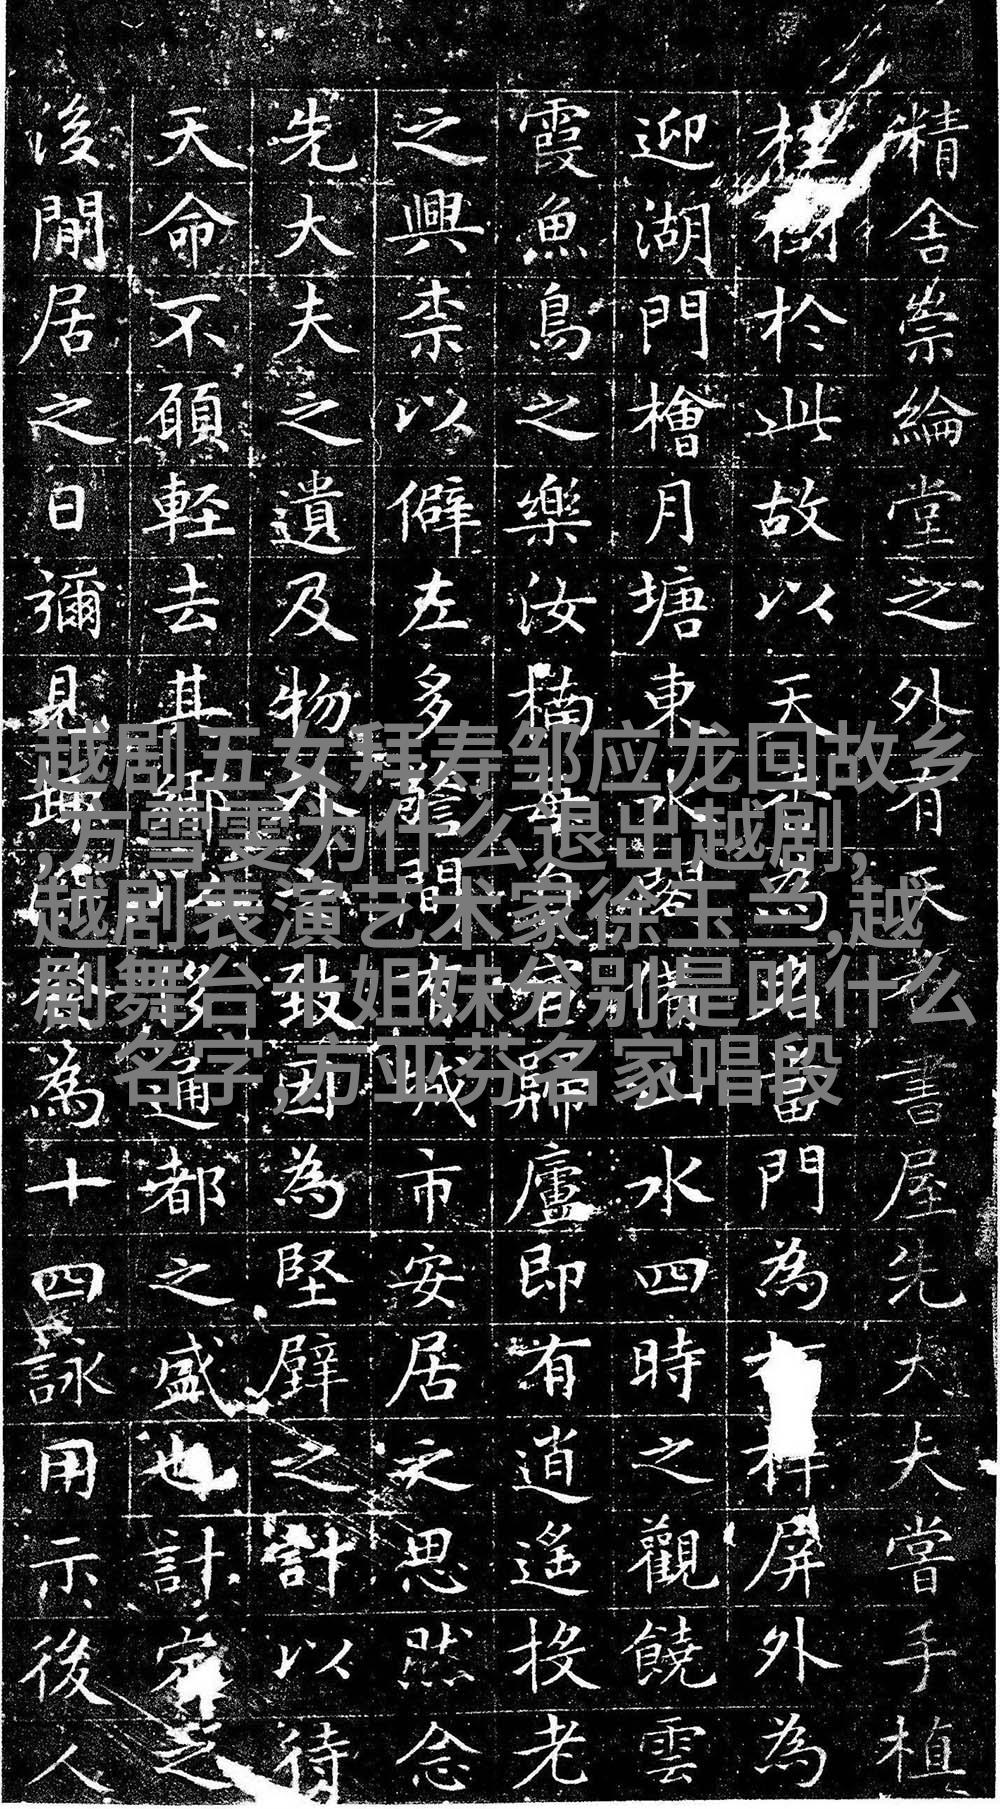 精舍崇綸堂之外有天書屋先大夫嘗手植
桂樹於此故以天為當門為屏外為
迎湖門檜月塘東水閣備山水四時之觀饒雲
霞魚鳥之樂汝楠省歸廬即有逍遙投老
之興柰以僻左多間有城市安居之思然念
先大夫之遺及物外之致因為堅壁之計以待
天命不願輕去其鄉移通都之盛也計定之
後閒居之日彌見趣為十四詠用示後人
越剧五女拜寿邹应龙回故乡
,方雪雯为什么退出越剧,
越剧表演艺术家徐玉兰,越
剧舞台十姐妹分别是叫什么
名字,方亚芬名家唱段